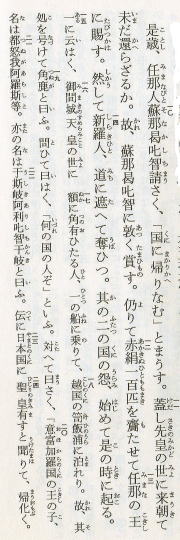 是歳、任那人蘇那曷叱智請さく、「国に帰りなむ」とまうす。蓋し先皇の世に来朝て
未だ還らざるか。故、蘇那曷叱智に敦く賞す。仍りて赤絹一百匹を齎たせて任那の王
に賜す。然して新羅人、道に遮へて奪ひつ。其の二つの国の怨、始めて是の時に起る。
一に云はく、御間城天皇の世に、額に角有ひたる人、一の船に乗りて、越国の笥飯浦に泊れり。故、其
処を号けて角鹿と曰ふ。問ひて曰はく、「何の国の人ぞ」といふ。対へて曰さく、「意富加羅国の王の子、
名は都怒我阿羅斯等。亦の名は于斯岐阿利叱智干岐と曰ふ。伝に日本国に聖皇有すと聞りて、帰化く。